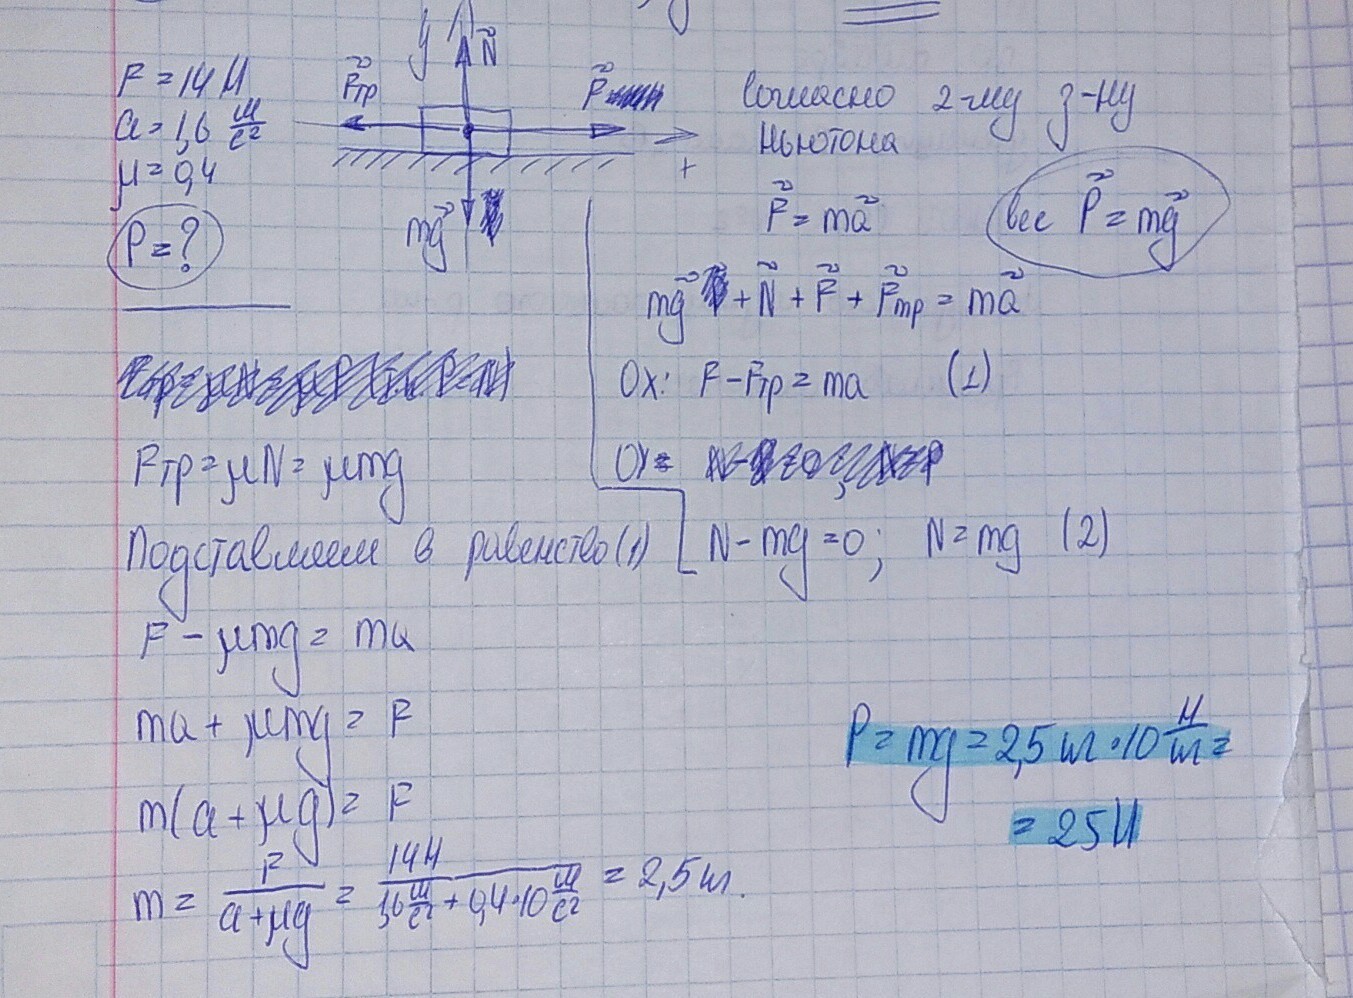 y N⃗
F = 14 Н
a = 1,6 м/с²
μ = 0,4
P = ?
F⃗тр
F⃗
+
mg⃗
Согласно 2-му з-ну
Ньютона
F⃗ = ma⃗
вес P⃗ = mg⃗
mg⃗ + N⃗ + F⃗ + F⃗тр = ma⃗
Ox: F - Fтр = ma (1)
Oy:
N - mg = 0; N = mg (2)
Fтр = μN = μmg
Подставляем в равенство (1)
F - μmg = ma
ma + μmg = F
m(a + μg) = F
m = F/(a + μg) = 14Н/(1,6 м/с² + 0,4·10 м/с²) = 2,5 кг.
P = mg = 2,5 кг · 10 Н/кг =
= 25 Н